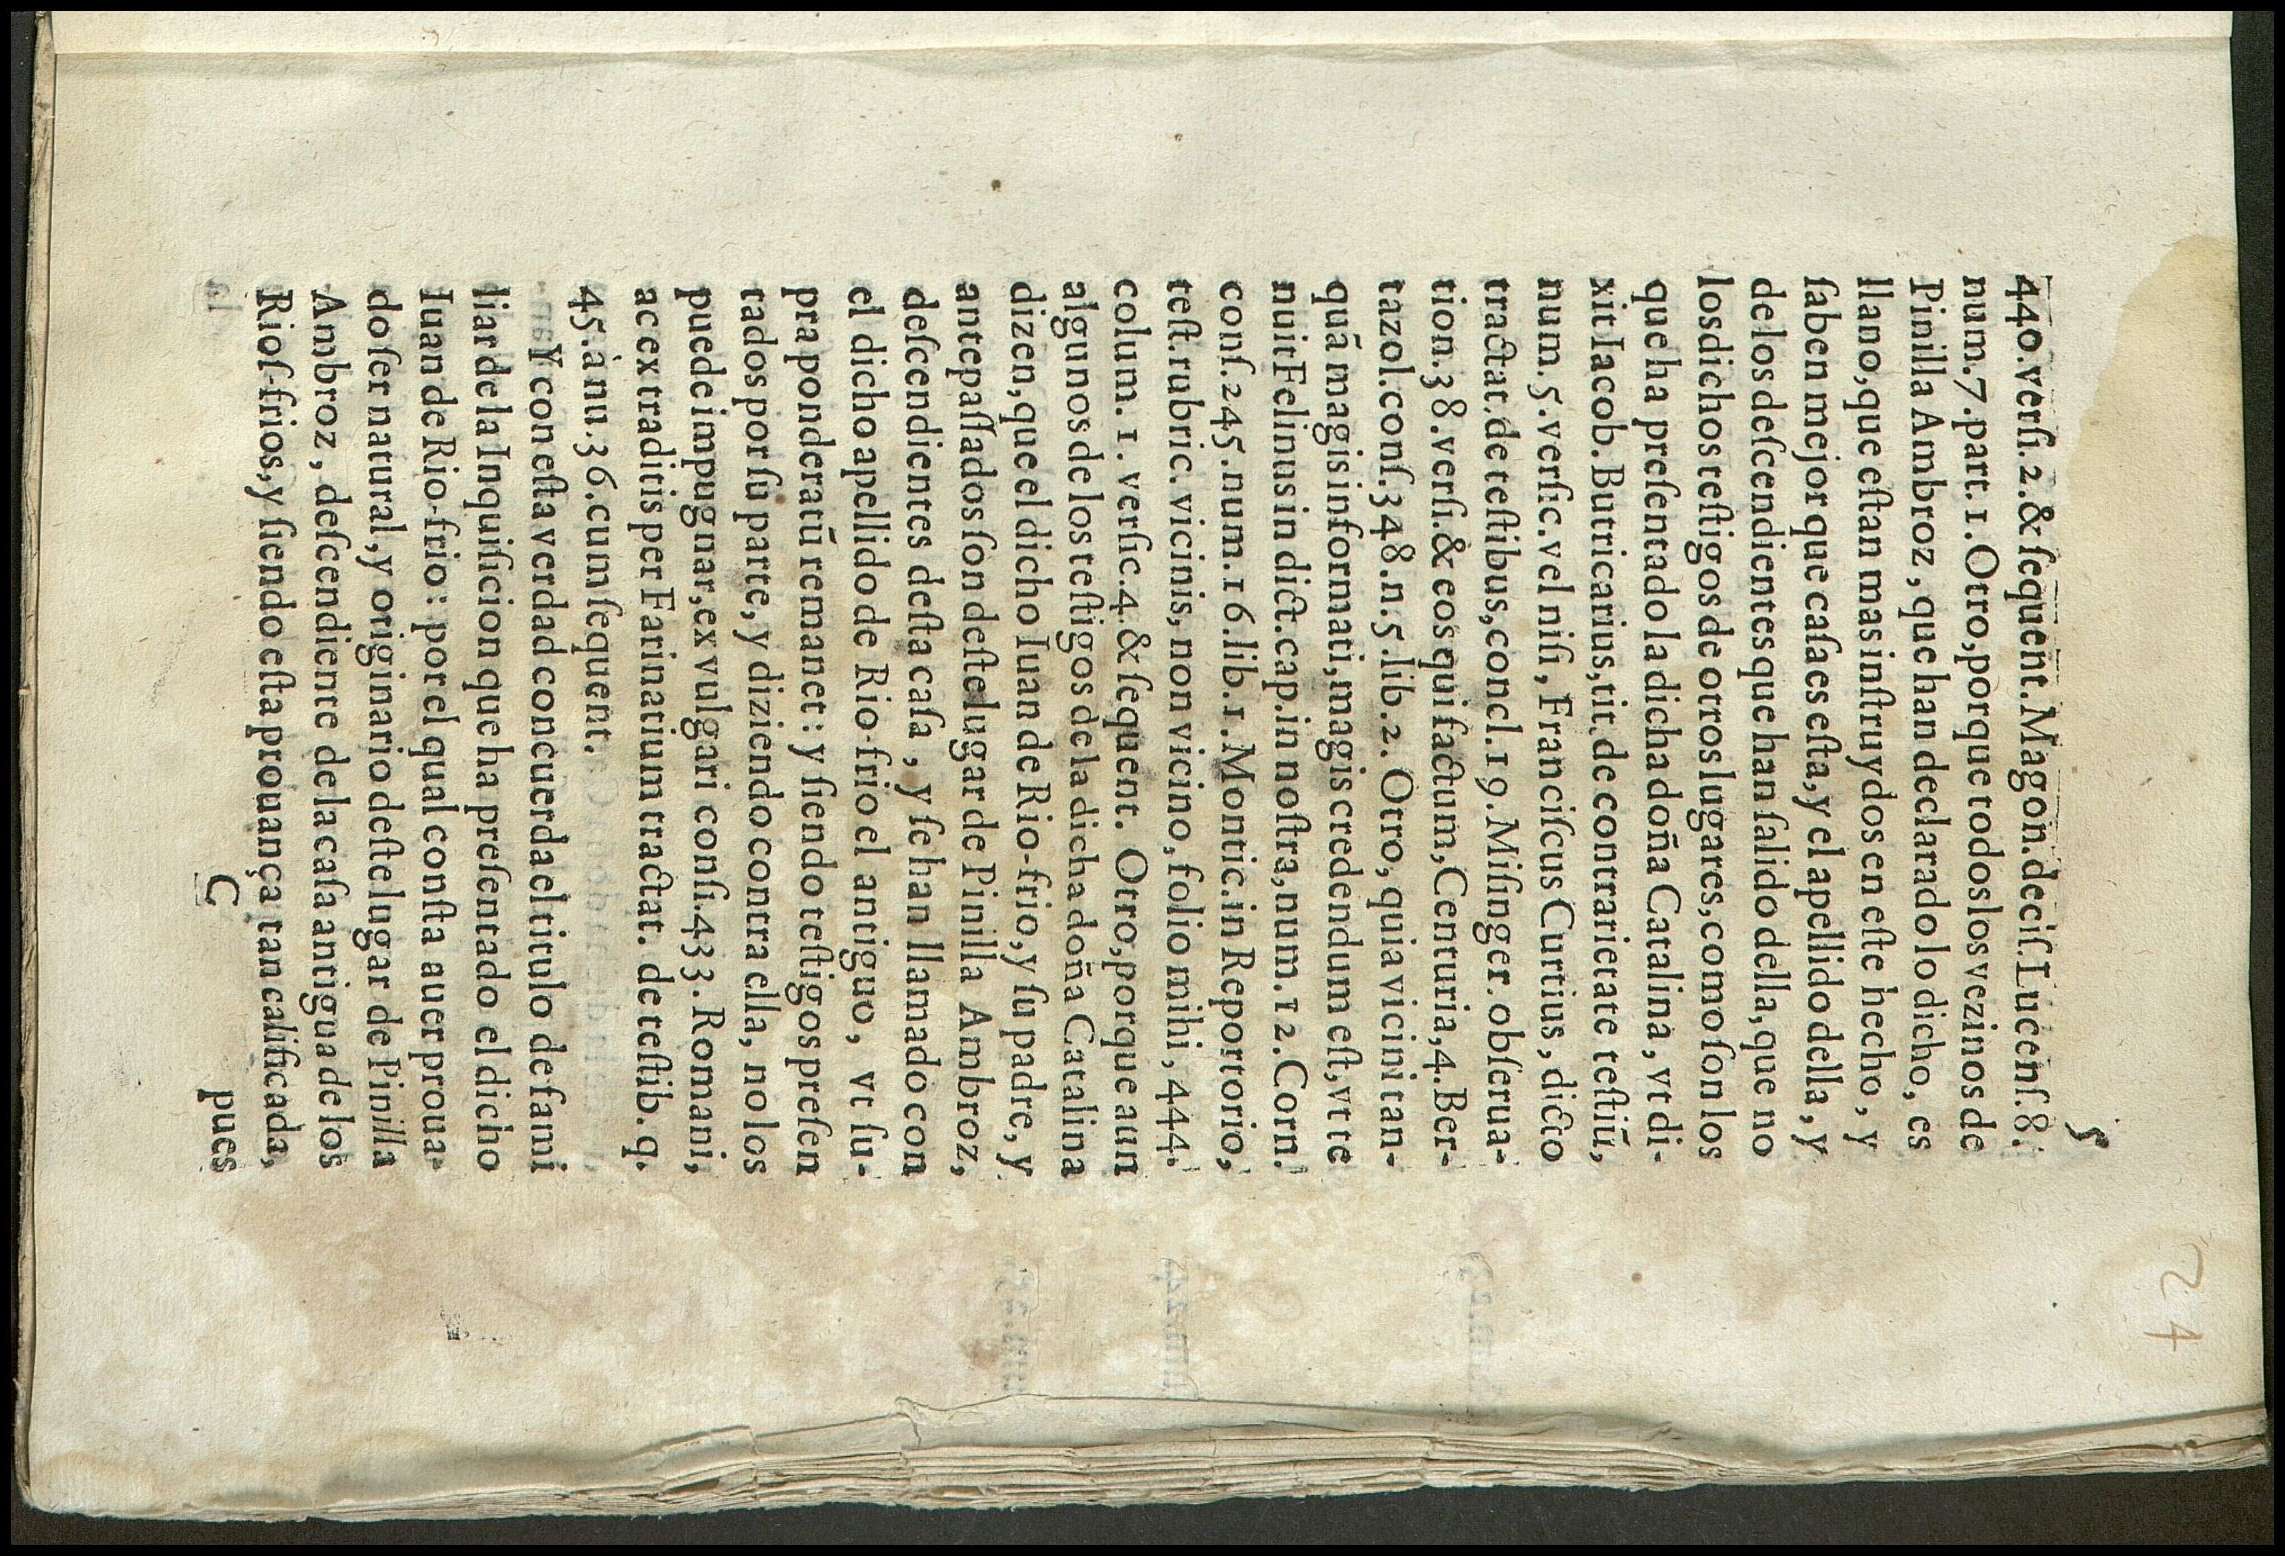 5
24
440.verſi.2.&ſequent.Magon.deciſ.Lucenſ.8.
num.7.part.1.Otro,porque todos los vezinos de
Pinilla Ambroz, que han declarado lo dicho, es
llano,que eſtan mas inſtruydos en eſte hecho, y
ſaben mejor que caſa es eſta,y el apellido della, y
de los deſcendientes que han ſalido della,que no
los dichos teſtigos de otros lugares,como ſon los
que ha preſentado la dicha doña Catalina, vt di-
xit Iacob.Butricarius,tit.de contrarietate teſtiū,
num.5.verſic.vel niſi, Franciſcus Curtius, dicto
tractat.de teſtibus,concl.19.Miſinger.obſerua-
tion.38.verſi.& eos qui factum,Centuria,4.Ber-
tazol.conſ.348.n.5.lib.2. Otro, quia vicini tan-
quã magis informati,magis credendum eſt,vt te
nuit Felinus in dict.cap.in noſtra,num.12.Corn.
conſ.245.num.16.lib.1.Montic.in Reportorio,
teſt.rubric.vicinis, non vicino, folio mihi, 444.
colum.1. verſic.4.& ſequent. Otro,porque aun
algunos de los teſtigos de la dicha doña Catalina
dizen,que el dicho Iuan de Rio-frio,y ſu padre, y
antepaſſados ſon deſte lugar de Pinilla Ambroz,
deſcendientes deſta caſa, y ſe han llamado con
el dicho apellido de Rio-frio el antiguo, vt ſu-
pra ponderatū remanet: y ſiendo teſtigos preſen
tados por ſu parte, y diziendo contra ella, no los
puede impugnar,ex vulgari conſi.433. Romani,
ac ex traditis per Farinatium tractat. de teſtib. q.
45.à nu.36.cum ſequent.
Y con eſta verdad concuerda el titulo de fami
liar de la Inquiſicion que ha preſentado el dicho
Iuan de Rio-frio: por el qual conſta auer proua-
do ſer natural,y originario deſte lugar de Pinilla
Ambroz, deſcendiente de la caſa antigua de los
Rioſ-frios,y ſiendo eſta prouança tan calificada,
C pues